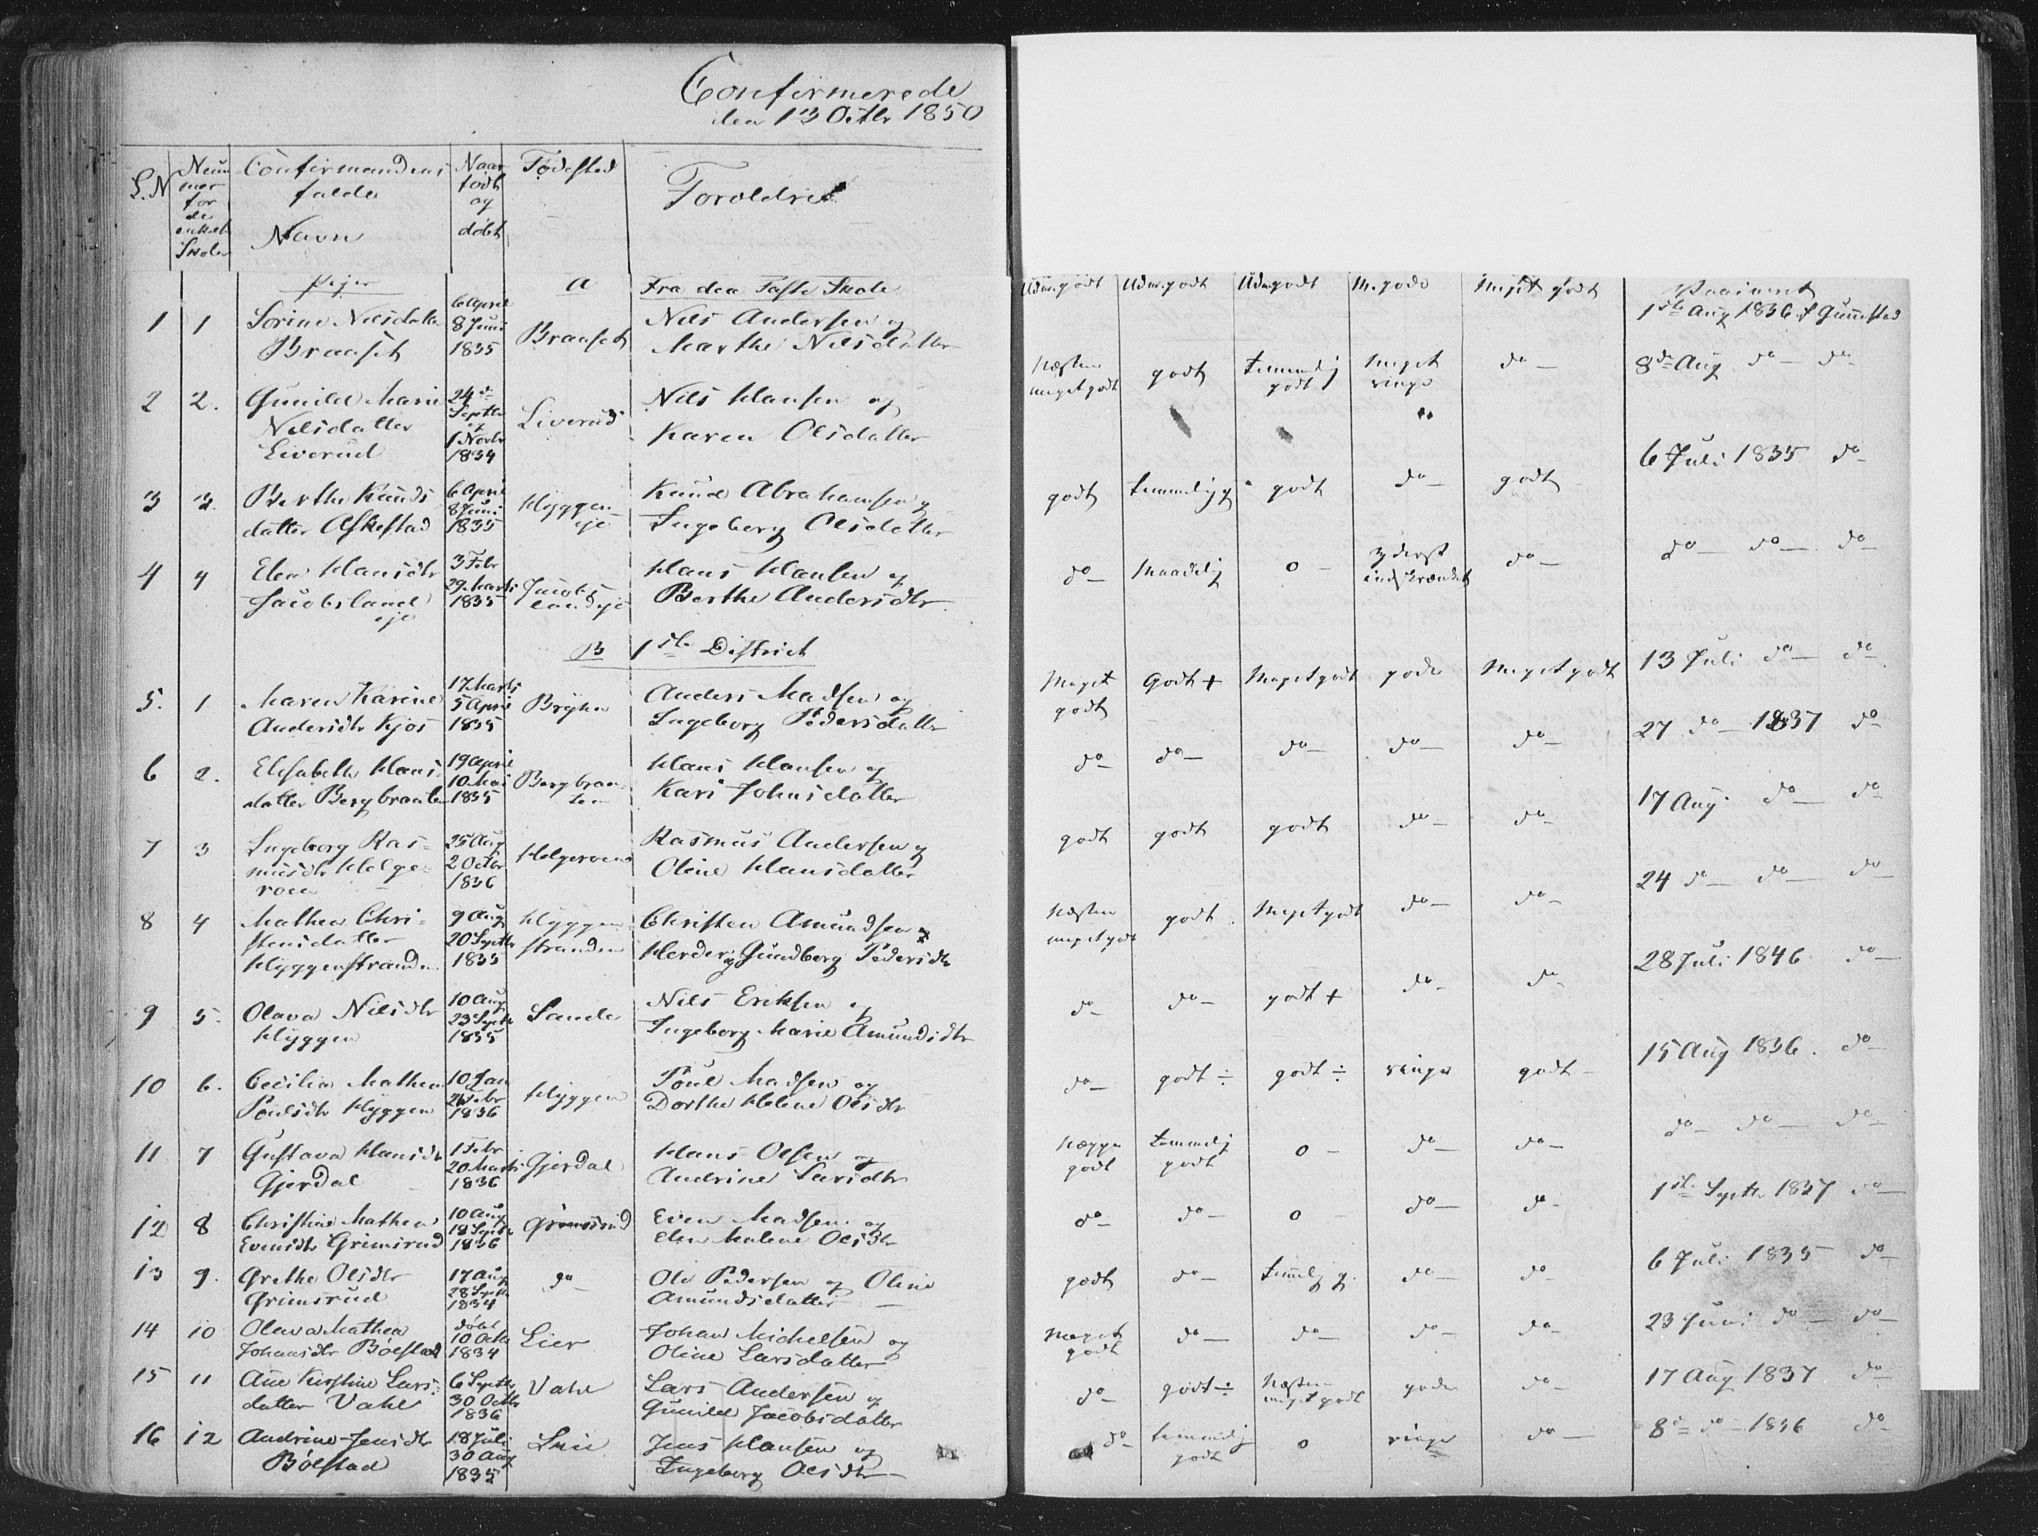 Confirmerede
den 13 Octbr 1850
L.N
Num
mer
for
de
enkelte
Skoler
Confirmandens
fulde
Navn
Naar
født
og
døbt
Fødested
Forældre
Piger
A
Fra den Faste Skole
1 1 Sorine Nilsdatter
Braaset
6 April
8 Juni
1835
Braaset
Nils Andersen og
Marthe Nilsdatter
Udm. godt Udm. godt Udm. godt M. gode Meget godt
1ste Aug 1836
2 2. Gunild Marie
Nilsdatter
Liverud
24de
Septbr
1 Novbr
1834
Liverud
Nils Hansen og
Karen Olsdatter
Næsten
meget godt
godt
temmelig
godt
Meget
ringe
do
8de Aug do do
3 3. Berthe Knuds
datter Askestad
6 April
8 Juni
1835
Hyggen
eje
Knud Abrahamsen og
Ingeborg Olsdatter
godt temmelig g godt do godt
6 Juli 1835 do
4 4 Elen Hansdtr
Jacobsland
eje
3 Febr
29 Marts
1835
Jacobs
landseje
Hans Hansen og
Berthe Andersdtr
do Maadelig o
Yderst
indskrænket
do
do do do
B 1ste District
5. 1 Maren Karine
Andersdtr Kjos
17 Marts
5 April
1835
Bryhn
Anders Madsen og
Ingeborg Pedersdatter
Meget
godt
Godt + Meget godt gode Meget godt
13 Juli do do
6 2. Elisabeth Hans
datter Bergbraaten
19 April
10 Mai
1835
Bergbraa-
ten
Hans Hansen og
Kari Johnsdatter
do do do do do
27 do 1837 do
7 3 Ingeborg Ras-
musdtr Helge-
roen
25 Aug
2 Octbr
1836
Helgeroen
Rasmus Andersen og
Oline Hansdatter
godt godt godt do do
17 Aug. do do
8 4 Mathea Chri-
stensdatter
Hyggenstranden
9 Aug
20 Septbr
1835
Hyggen
stranden
Christen Amundsen
Herder og Gundborg Pedersdtr
Næsten
meget godt
godt Meget godt do do
24 do do do
9 5. Olava Nilsdtr
Hyggen
10 Aug
23 Septbr
1835
Sande
Nils Eriksen og
Ingeborg Marie Amundsdtr
do do godt + do do
28 Juli 1846 do
10 6. Cecilia Mathea
Poulsdtr Hyggen
10 Jan
Febr
1836
Hyggen
Poul Madsen og
Dorthe Helene Olsdtr
do godt ÷ godt ÷ ringe godt
15 Aug 1836. do
11 7 Gustava Hansdtr
Gjerdal
1 Febr
20 Marts
1836
Gjerdal
Hans Olsen og
Andrine Larsdtr
Neppe
godt
temmelig
godt
o do do
do do do
12 8 Christine Mathea
Evensdtr Grimsrud
10 Aug
18 Septbr
1836
Grimsrud
Even Madsen og
Elen Malene Olsdtr
do do o do do
1ste Septbr 1837 do
13 9. Grethe Olsdtr
Grimsrud
17 Aug
28 Septbr
1834
do
Ole Pedersen og Oline
Amundsdatter
godt do temmelig g. do do
6 Juli 1835 do
14 10 Olava Mathea
Johansdtr Bølstad
døbt
10 Octbr
1834
Lier
Johan Michelsen og
Oline Larsdatter
Meget
godt
do do do do
23 Juni do do
15 11 Ane Kirstine Lars-
datter Vahl
6 Septbr
30 Octbr
1836
Vahl
Lars Andersen og
Gunild Jacobsdatter
do godt ÷
Næsten
meget godt
gode do
17 Aug 1837 do
16 12 Andrine Jensdtr
Bølstad
18 Juli
30 Aug
1835
Jens Hansen og
Ingeborg Olsdtr
do
temmelig
godt
o ringe do
8de do 1836 do